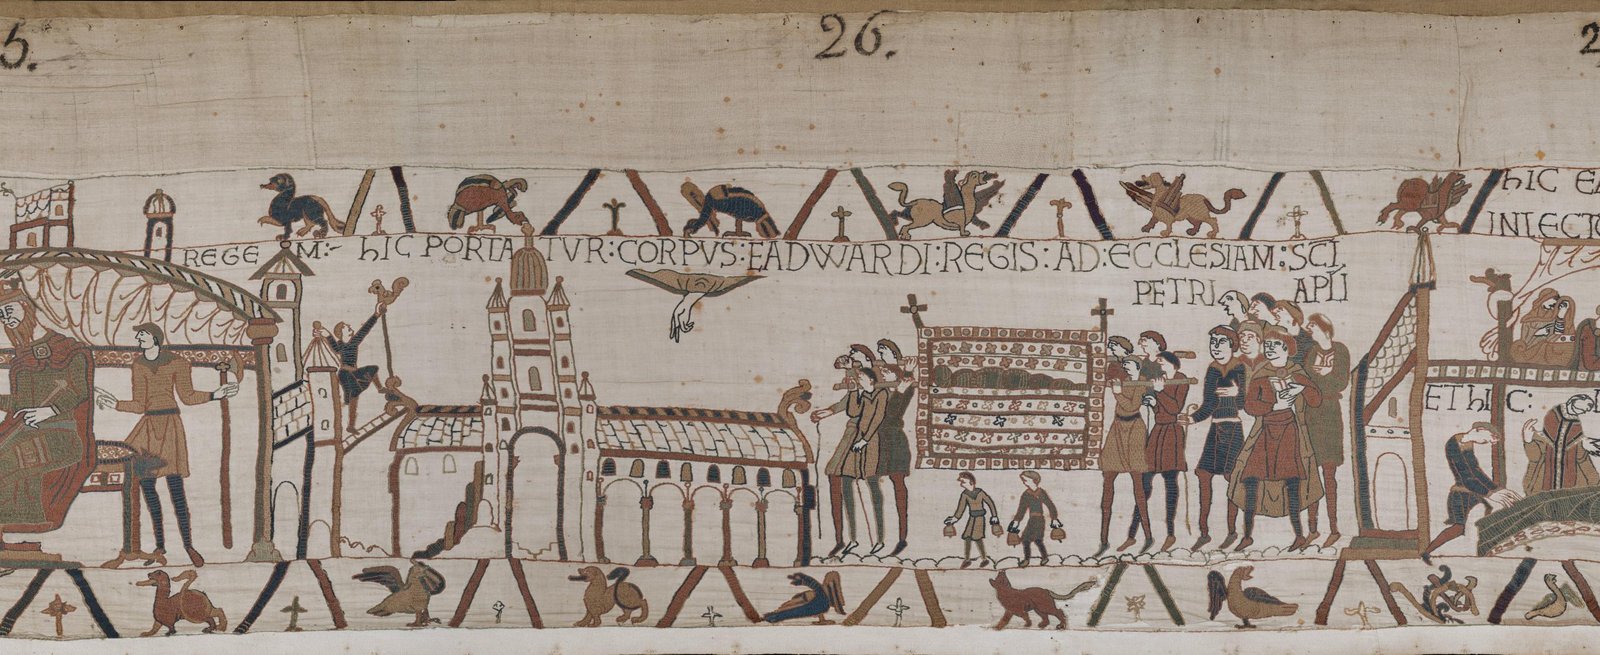 5.
26.
2
REGE M:- hIC PORTATVR:CORPVS:EADWARDI:REGIS:AD:ECCLESIAM:SCI
PETRI APLI
hIC EA
INLECTO
ET hIC: